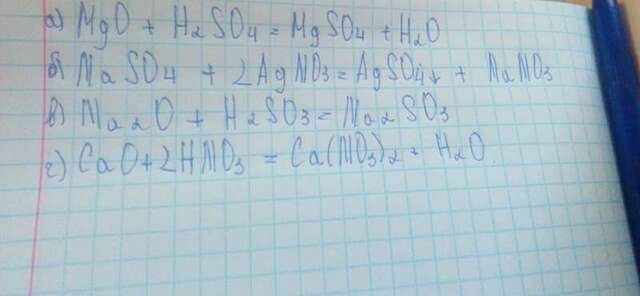 а) MgO + H2SO4 = MgSO4 + H2O
б) NaSO4 + 2AgNO3 = AgSO4↓ + NaNO3
в) Na2O + H2SO3 = Na2SO3
г) CaO + 2HNO3 = Ca(NO3)2 + H2O.